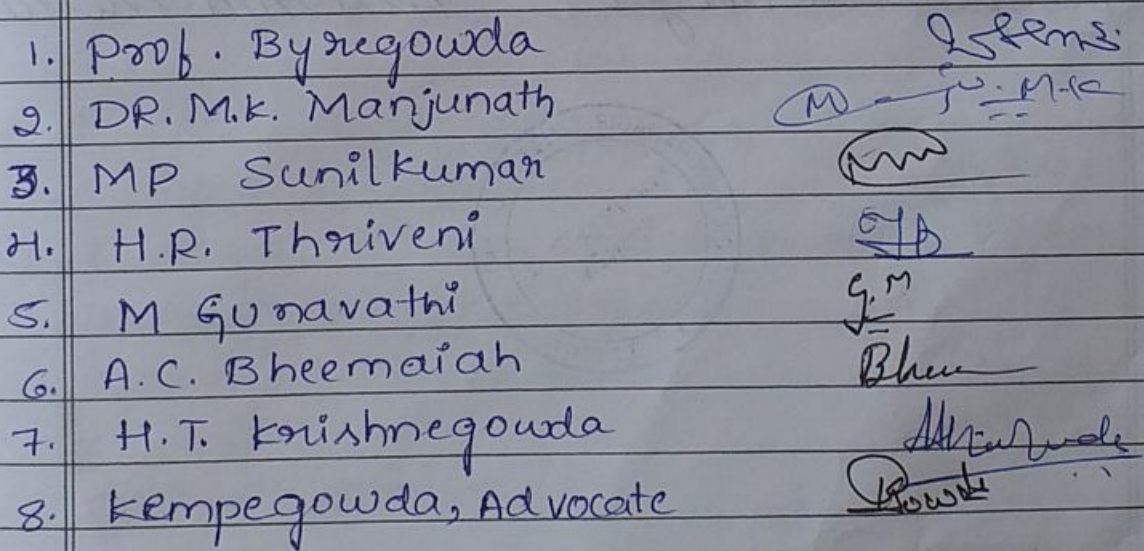 1. Prof. Byregowda
2. DR. M.K. Manjunath
3. MP Sunilkumar
4. H.R. Thriveni
5. M Gunavathi G.M
6. A.C. Bheemaiah
7. H.T. Krishnegowda
8. Kempegowda, Advocate